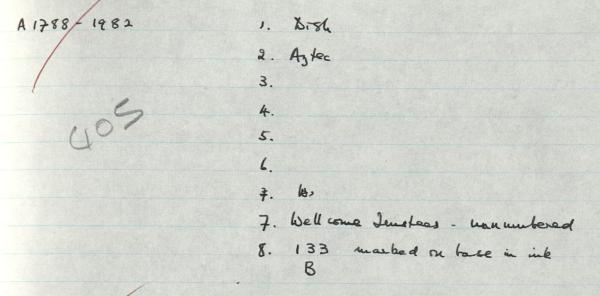 A 1788 - 1982 1. Dish
2. Aztec
3.
4.
405
5.
6.
7.
7. Wellcome Trustees - unnumbered
8. 133 marked on base in ink
B